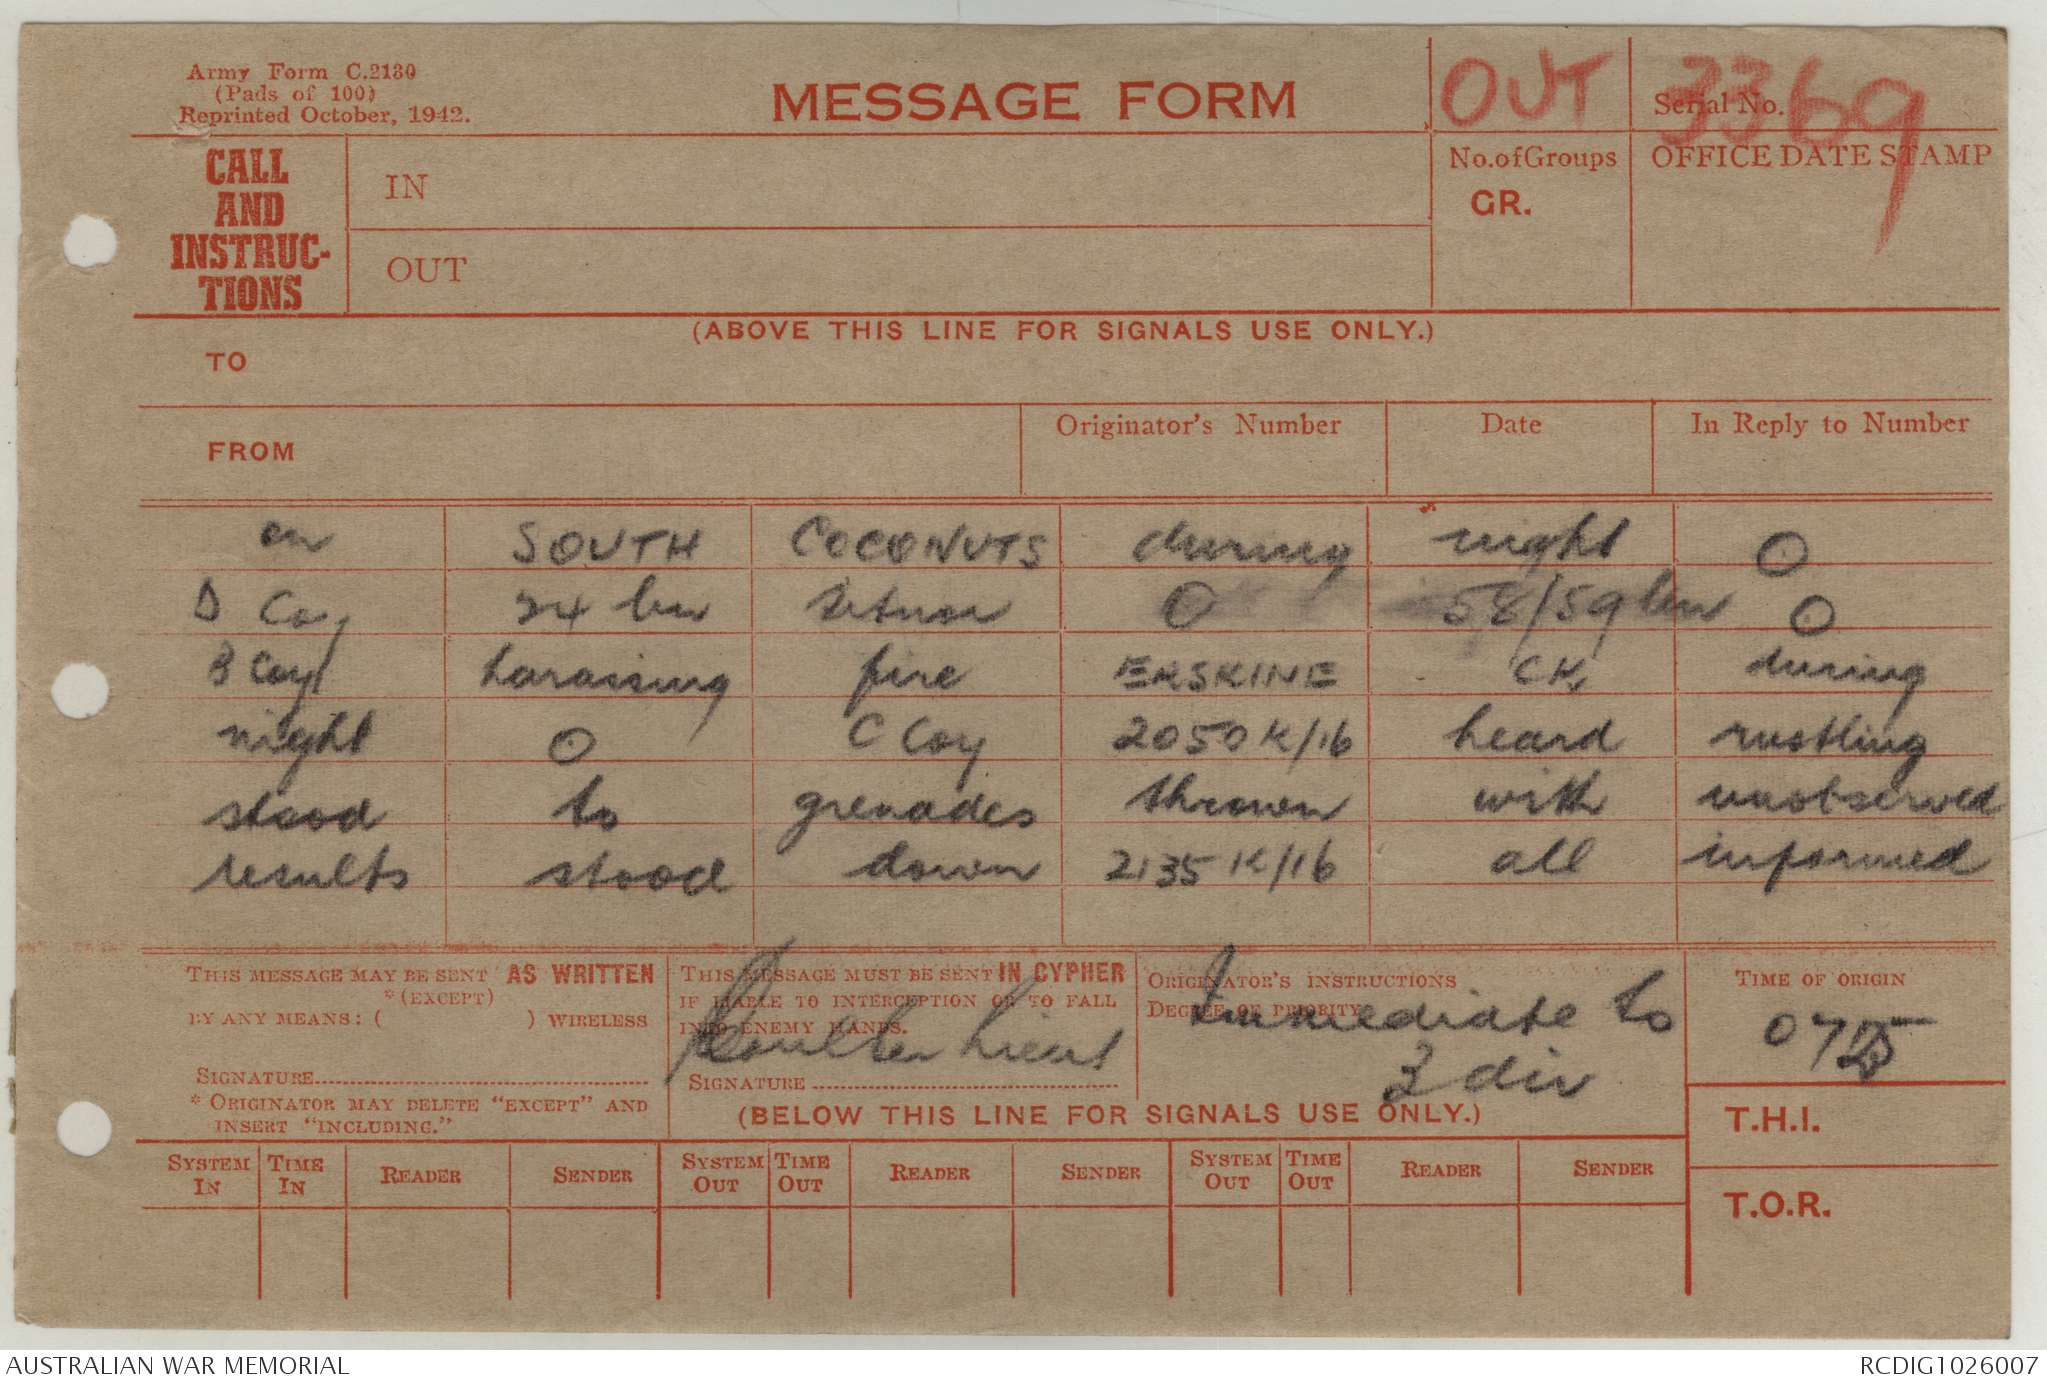 Army Form C.2130
(Pads of 100)
Reprinted October, 1942.
MESSAGE FORM
OUT
Serial No.
3369
CALL
AND
INSTRUC-
TIONS
IN
OUT
No. of Groups
GR.
OFFICE DATE STAMP
(ABOVE THIS LINE FOR SIGNALS USE ONLY.)
TO
FROM
Originator's Number
Date
In Reply to Number
on SOUTH COCONUTS during night O
D Coy 24 bn sitnor O 58/59 bn O
B Coy harassing fire ERSKINE CK during
night O C Coy 2050K/16 heard rustling
stood to grenades thrown with unobserved
results stood down 2135K/16 all informed
THIS MESSAGE MAY BE SENT AS WRITTEN
*(EXCEPT)
BY ANY MEANS: ( ) WIRELESS
SIGNATURE
* ORIGINATOR MAY DELETE "EXCEPT" AND
INSERT "INCLUDING."
THIS MESSAGE MUST BE SENT IN CYPHER
IF LIABLE TO INTERCEPTION OR TO FALL
INTO ENEMY HANDS.
Lieut
SIGNATURE
ORIGINATOR'S INSTRUCTIONS
DEGREE OF PRIORITY
Immediate to
3 div
TIME OF ORIGIN
0725
(BELOW THIS LINE FOR SIGNALS USE ONLY.)
T.H.I.
T.O.R.
SYSTEM IN TIME IN READER SENDER SYSTEM OUT TIME OUT READER SENDER SYSTEM OUT TIME OUT READER SENDER
AUSTRALIAN WAR MEMORIAL
RCDIG1026007